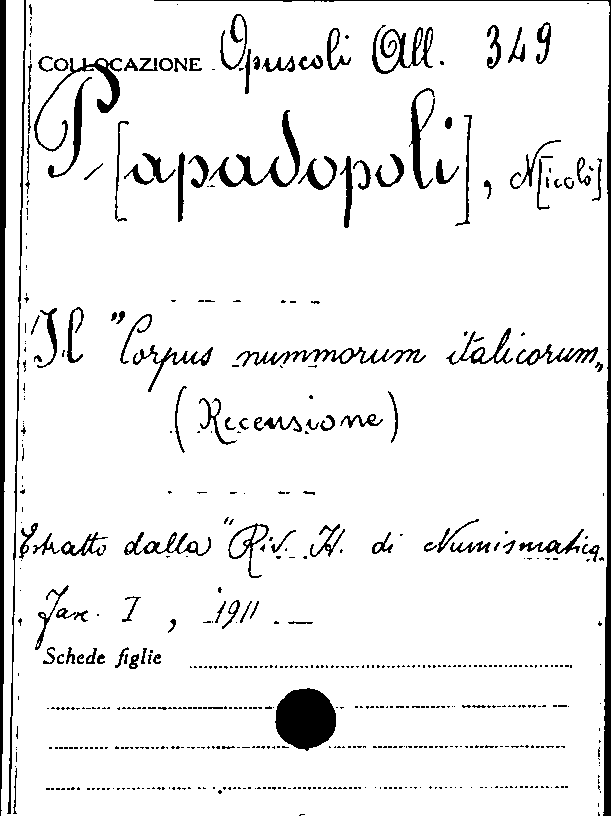 COLLOCAZIONE Opuscoli All. 349
P[apadopoli], N[icolò]
Il "Corpus nummorum italicorum„
(Recensione)
Estratto dalla "Riv. It. di Numismatica
Fasc. I, 1911.
Schede figlie